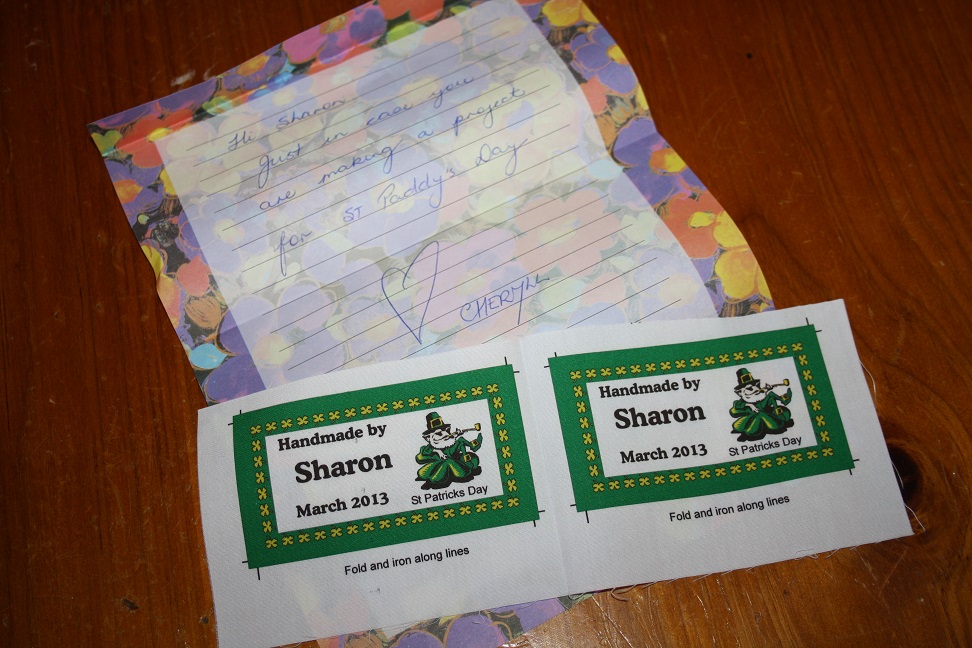 Hi Sharon
Just in case you
are making a project
for ST Paddy's Day
CHERYLL
Handmade by
Sharon
March 2013
St Patricks Day
Fold and iron along lines
Handmade by
Sharon
March 2013
St Patricks Day
Fold and iron along lines